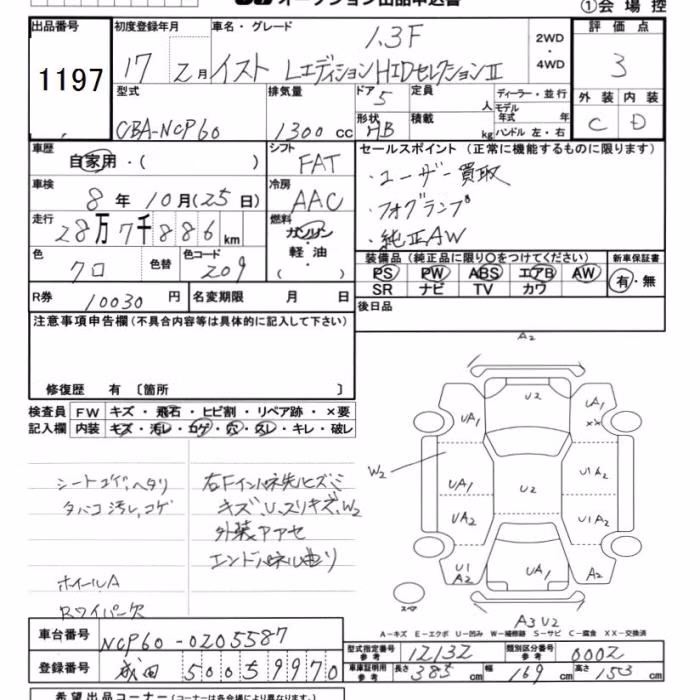 オークション出品申込書
①会場控
出品番号
1197
初度登録年月
17 2月
車名・グレード
1.3F
イスト LエディションHIDセレクションⅡ
2WD
・
4WD
評価点
3
外装 内装
C D
型式
CBA-NCP60
排気量
1300 cc
ドア 5
形状 HB
定員 人
積載 kg
ディーラー・並行
モデル年式 年
ハンドル 左・右
車歴
自家用・( )
シフト
FAT
車検
8年10月(25日)
冷房
AAC
走行
28万7千886km
燃料
ガソリン
・
軽油
( )
色
クロ
色替
色コード
209
R券 10030円
名変期限 月 日
セールスポイント(正常に機能するものに限ります)
・ユーザー買取
・フォグランプ
・純正AW
装備品(純正品に限り○をつけてください)
PS PW ABS エアB AW
SR ナビ TV カワ
新車保証書
有・無
後日品
注意事項申告欄(不具合内容等は具体的に記入して下さい)
修復歴 有 〔箇所 〕
検査員記入欄
FW キズ・飛石・ヒビ割・リペア跡・×要
内装 キズ・汚レ・コゲ・穴・スレ・キレ・破レ
シートコゲ、ヘタリ
タバコ汚レ、コゲ
ホイールA
Rワイパー欠
右Fインパネ先ヒズミ
キズ、U、スリキズ、W2
外装アアセ
エンドパネル曲リ
A2
U2
UA1
UA1
XX
W2
UA1
U2
U1A2
UA2
U1A2
U1
A2
UA1
A2
スペア
A3U2
A−キズ E−エクボ U−凹み W−補修跡 S−サビ C−腐食 XX−交換済
車台番号
NCP60-0205587
登録番号
成田 500 5 9970
型式指定番号 参考
12132
類別区分番号 参考
0002
車庫証明用 参考
長さ 385cm
幅 169cm
高さ 153cm
希望出品コーナー(コーナーは各会場により異なります。)